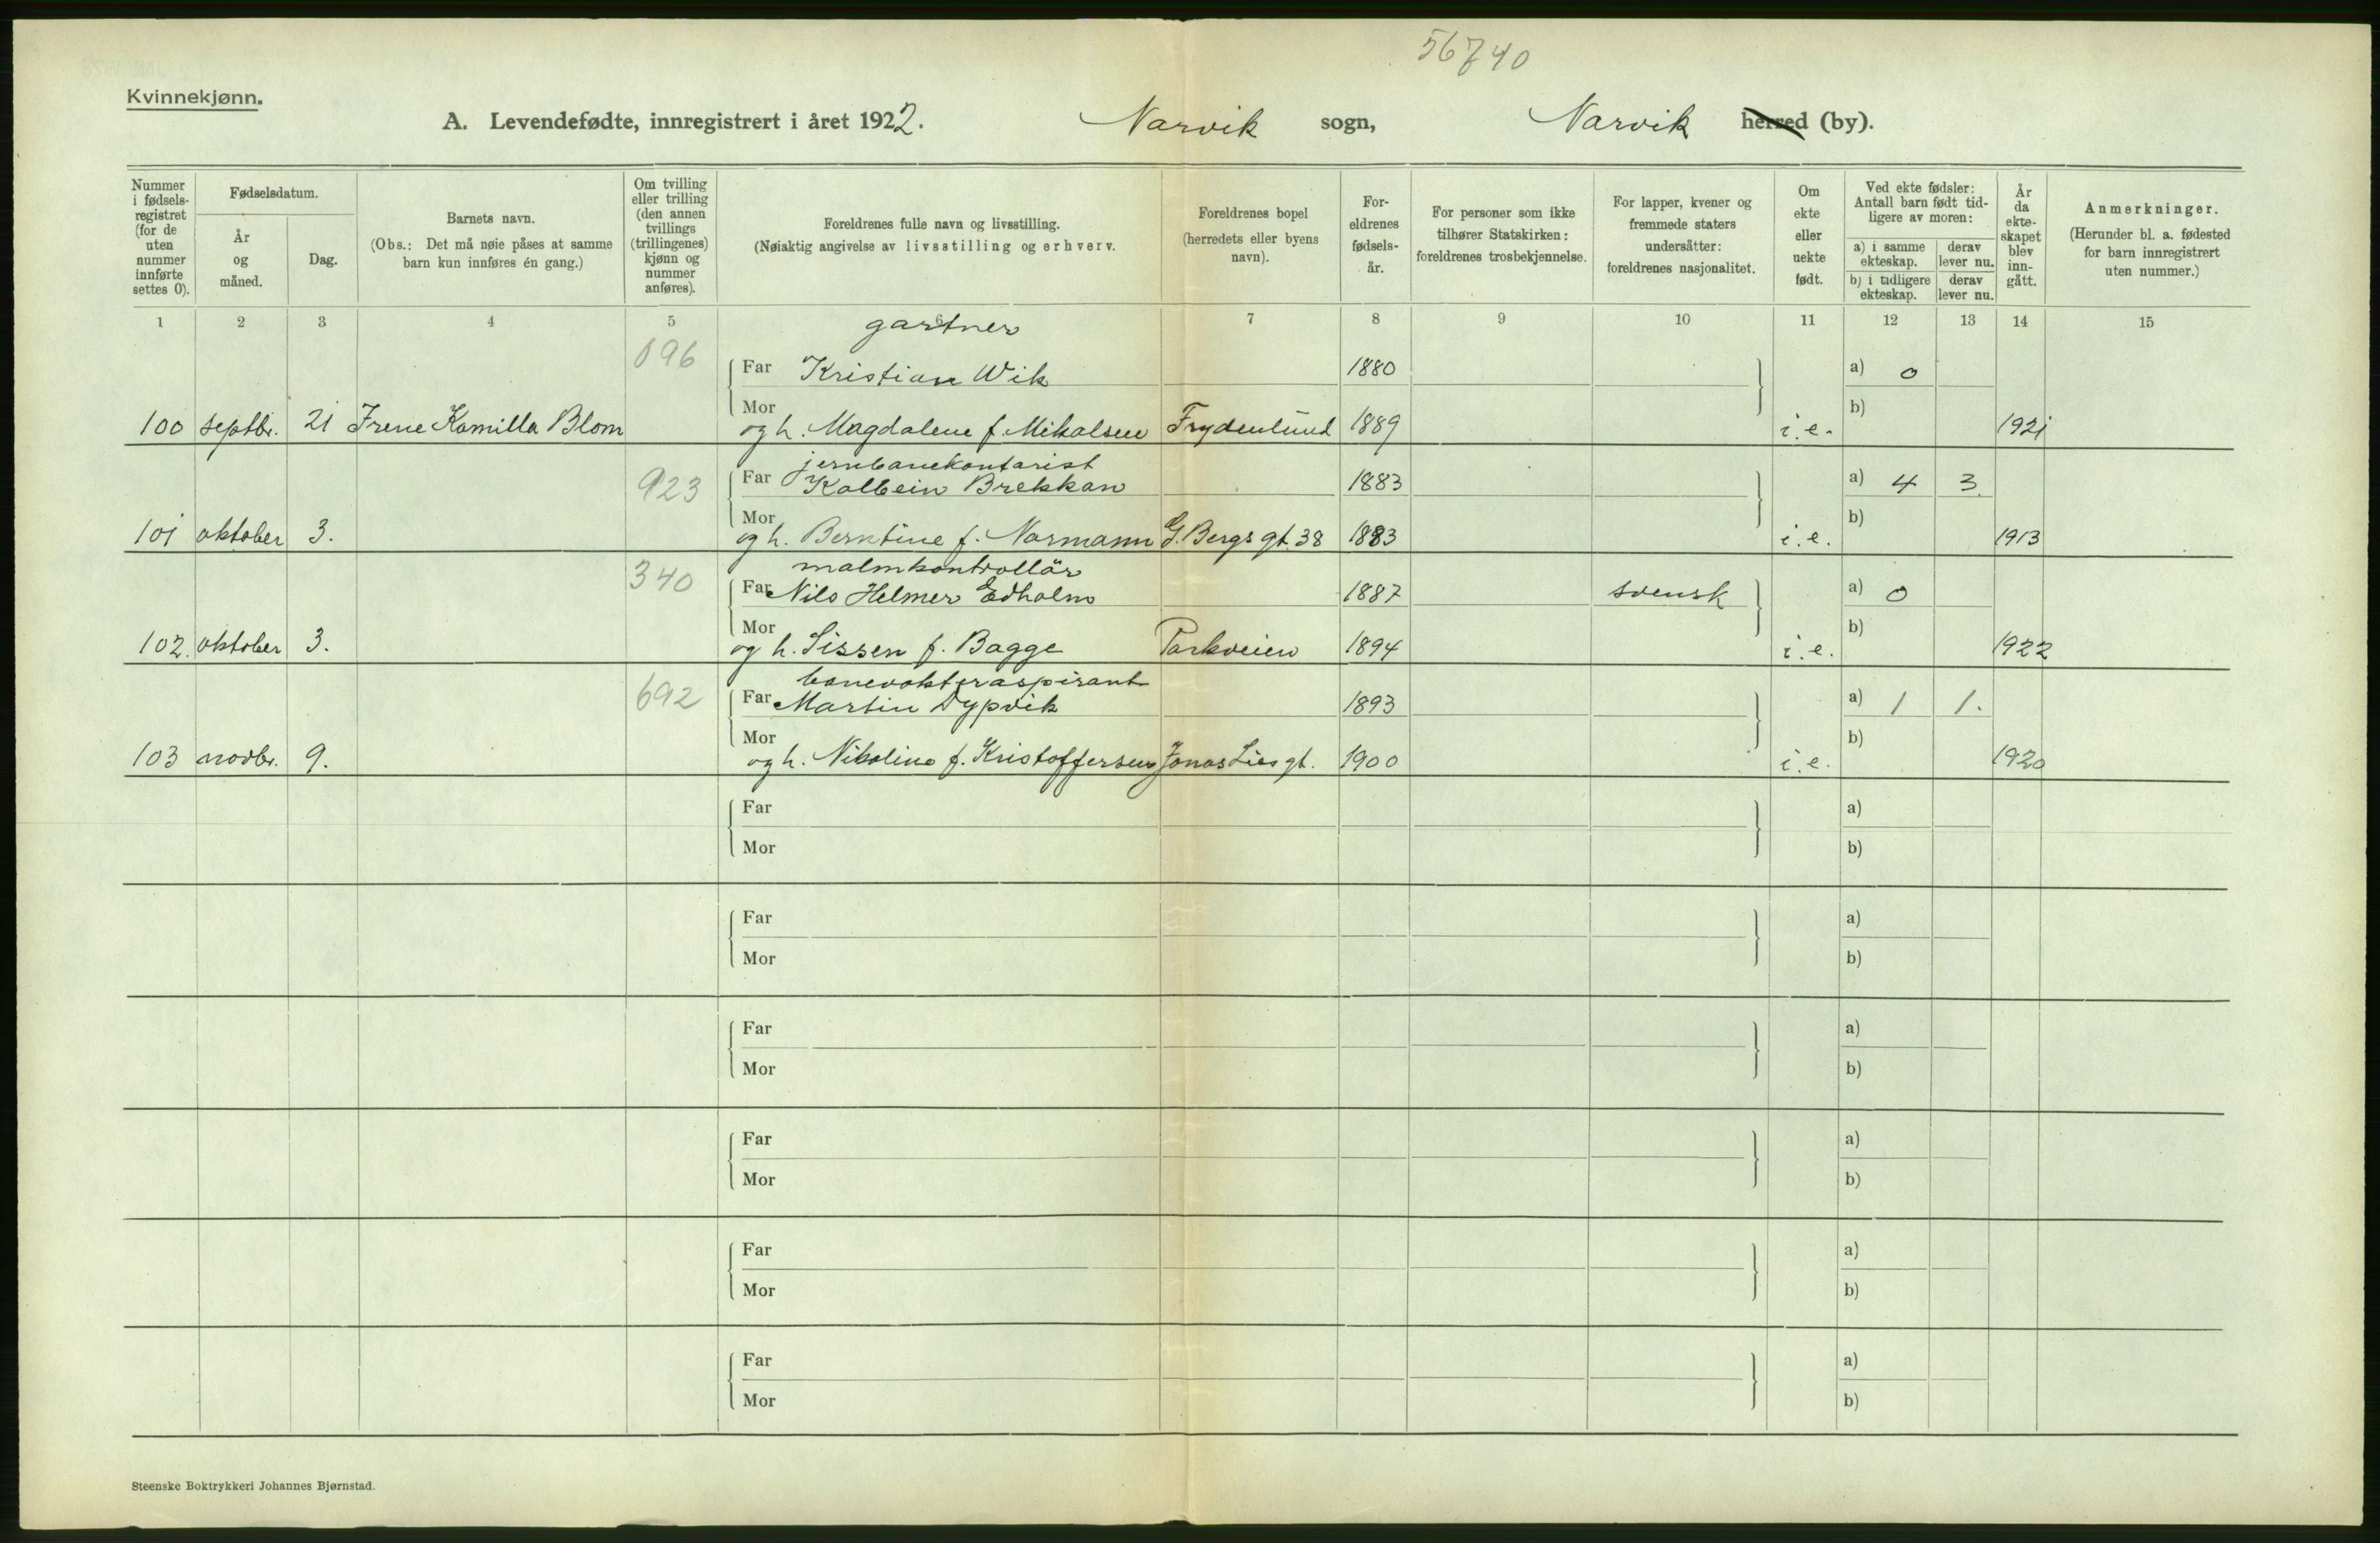 56740
Kvinnekjønn.
A. Levendefødte, innregistrert i året 1922. Narvik sogn, Narvik herred (by).
Nummer i fødsels-registret (for de uten nummer innførte settes 0).
Fødselsdatum.
År og måned.
Dag.
Barnets navn.
(Obs.: Det må nøie påses at samme barn kun innføres én gang.)
Om tvilling eller trilling (den annen tvillings (trillingenes) kjønn og nummer anføres).
Foreldrenes fulle navn og livsstilling.
(Nøiaktig angivelse av livsstilling og erhverv.
Foreldrenes bopel (herredets eller byens navn).
For-eldrenes fødsels-år.
For personer som ikke tilhører Statskirken: foreldrenes trosbekjennelse.
For lapper, kvener og fremmede staters undersåtter: foreldrenes nasjonalitet.
Om ekte eller uekte født.
Ved ekte fødsler: Antall barn født tid-ligere av moren:
a) i samme ekteskap.
derav lever nu.
b) i tidligere ekteskap.
derav lever nu.
År da ekte-skapet blev inn-gått.
Anmerkninger.
(Herunder bl. a. fødested for barn innregistrert uten nummer.)
1 2 3 4 5 6 7 8 9 10 11 12 13 14 15
gartner
096 Far Kristian Wik 1880 a) 0
Mor b)
100 septbr. 21 Irene Kamilla Blom og h. Magdalene f. Mikalsen Frydenlund 1889 i.e. 1921
jernbanekontorist
923 Far Kolbein Brekkan 1883 a) 4 3.
Mor b)
101 oktober 3. og h. Berntine f. Normann G. Bergs gt. 38 1883 i.e. 1913
malmkontrollär
340 Far Nils Helmer Edholm 1887 svensk a) 0
Mor b)
102. oktober 3. og h. Sissen f. Bagge Parkveien 1894 i.e. 1922
banevokteraspirant
692 Far Martin Dypvik 1893 a) 1 1.
Mor b)
103 novbr. 9. og h. Nikoline f. Kristoffersen Jonas Lies gt. 1900 i.e. 1920
Far a)
Mor b)
Far a)
Mor b)
Far a)
Mor b)
Far a)
Mor b)
Far a)
Mor b)
Far a)
Mor b)
Steenske Boktrykkeri Johannes Bjørnstad.